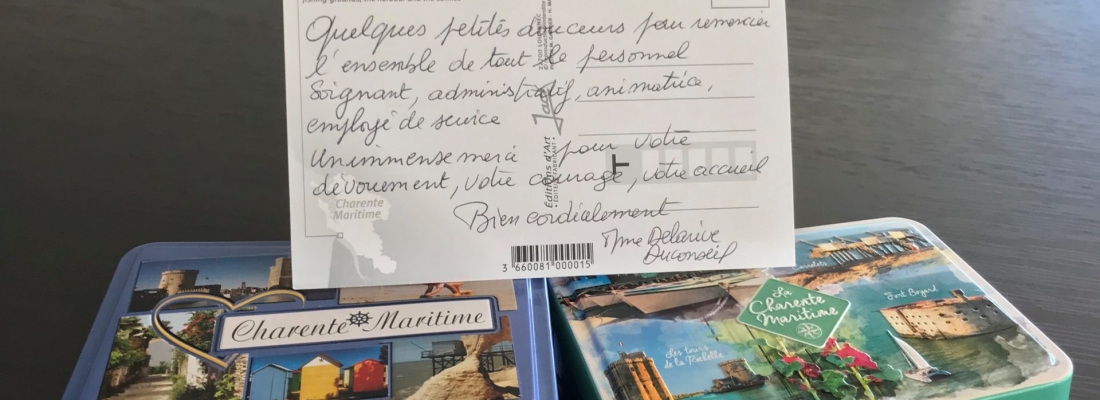 Quelques petites douceurs pour remercier
l'ensemble de tout le personnel
Soignant, administratif, animatrice,
employé de service
Un immense merci pour votre
dévouement, votre courage, votre accueil
Bien cordialement
Mme Delarive
Duconseil
Charente
Maritime
Editions d'Art
Jack
3 660081 000015
Charente Maritime
La
Charente
Maritime
Fort Boyard
Les tours
de la Rochelle